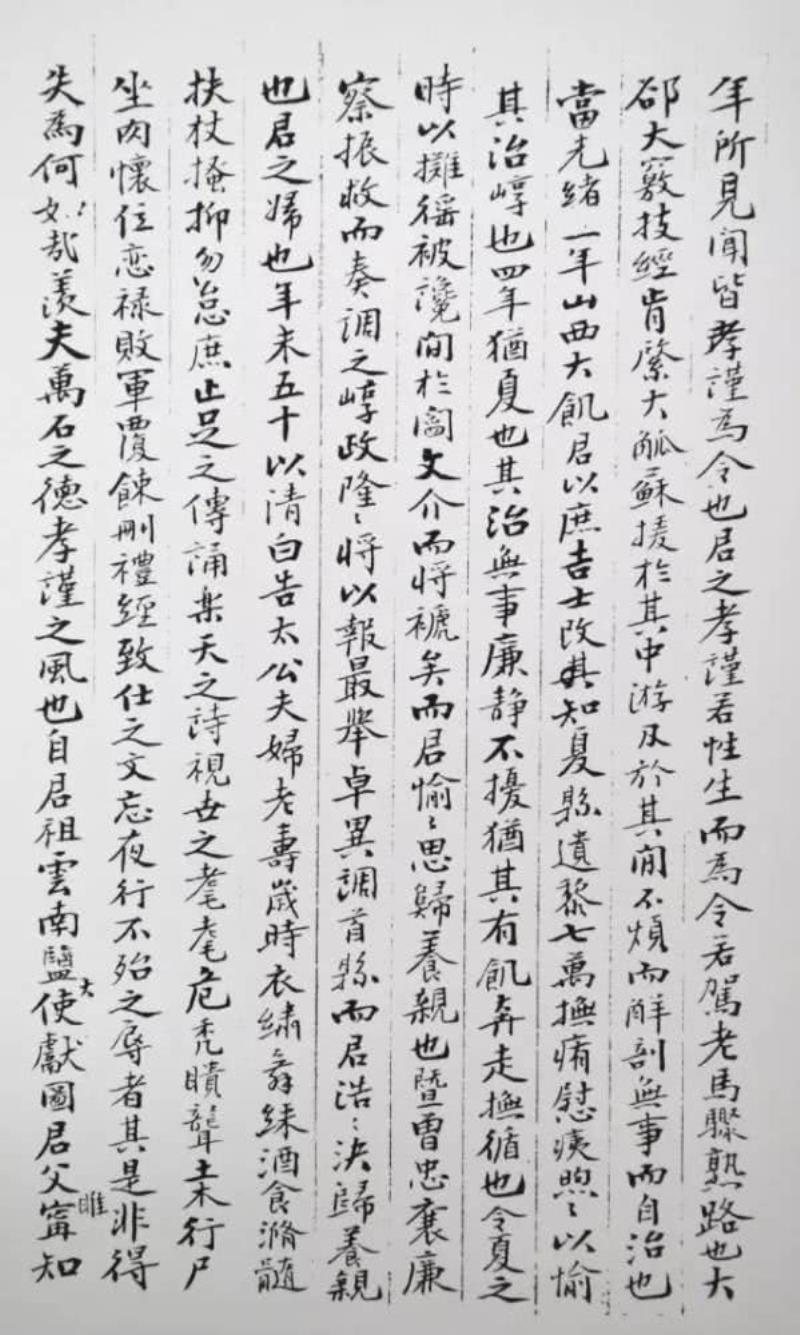 年所見聞皆孝謹為令也君之孝謹若性生而為令若駕老馬驟熟路也大
郤大竅技經肯綮大軱蘇援於其中游刃於其間不煩而解剖無事而自治也
當光緒一年山西大飢君以庶吉士改其知夏縣遺黎七萬撫瘠慰痍煦〻以愉
其治崞也四年猶夏也其治無事廉静不擾猶其有飢奔走撫循也令夏之
時以攤徭被讒間於閻文介而将褫矣而君愉〻思歸養親也暨曾忠襄廉
察振救而奏調之崞政隆〻将以報最舉卓異調首縣而君浩〻決歸養親
也君之婦也年未五十以清白告太公夫婦老壽嵗時衣繡舞綵酒食滫髓
扶杖搔抑勿怠庶止足之傳誦樂天之詩視世之耄耄危禿瞶聾土木行尸
坐肉懷位恋禄敗軍覆餗刪禮經致仕之文忘夜行不殆之辱者其是非得
失為何如哉羨夫萬石之德孝謹之風也自君祖雲南鹽大使獻圖君父寗睢知